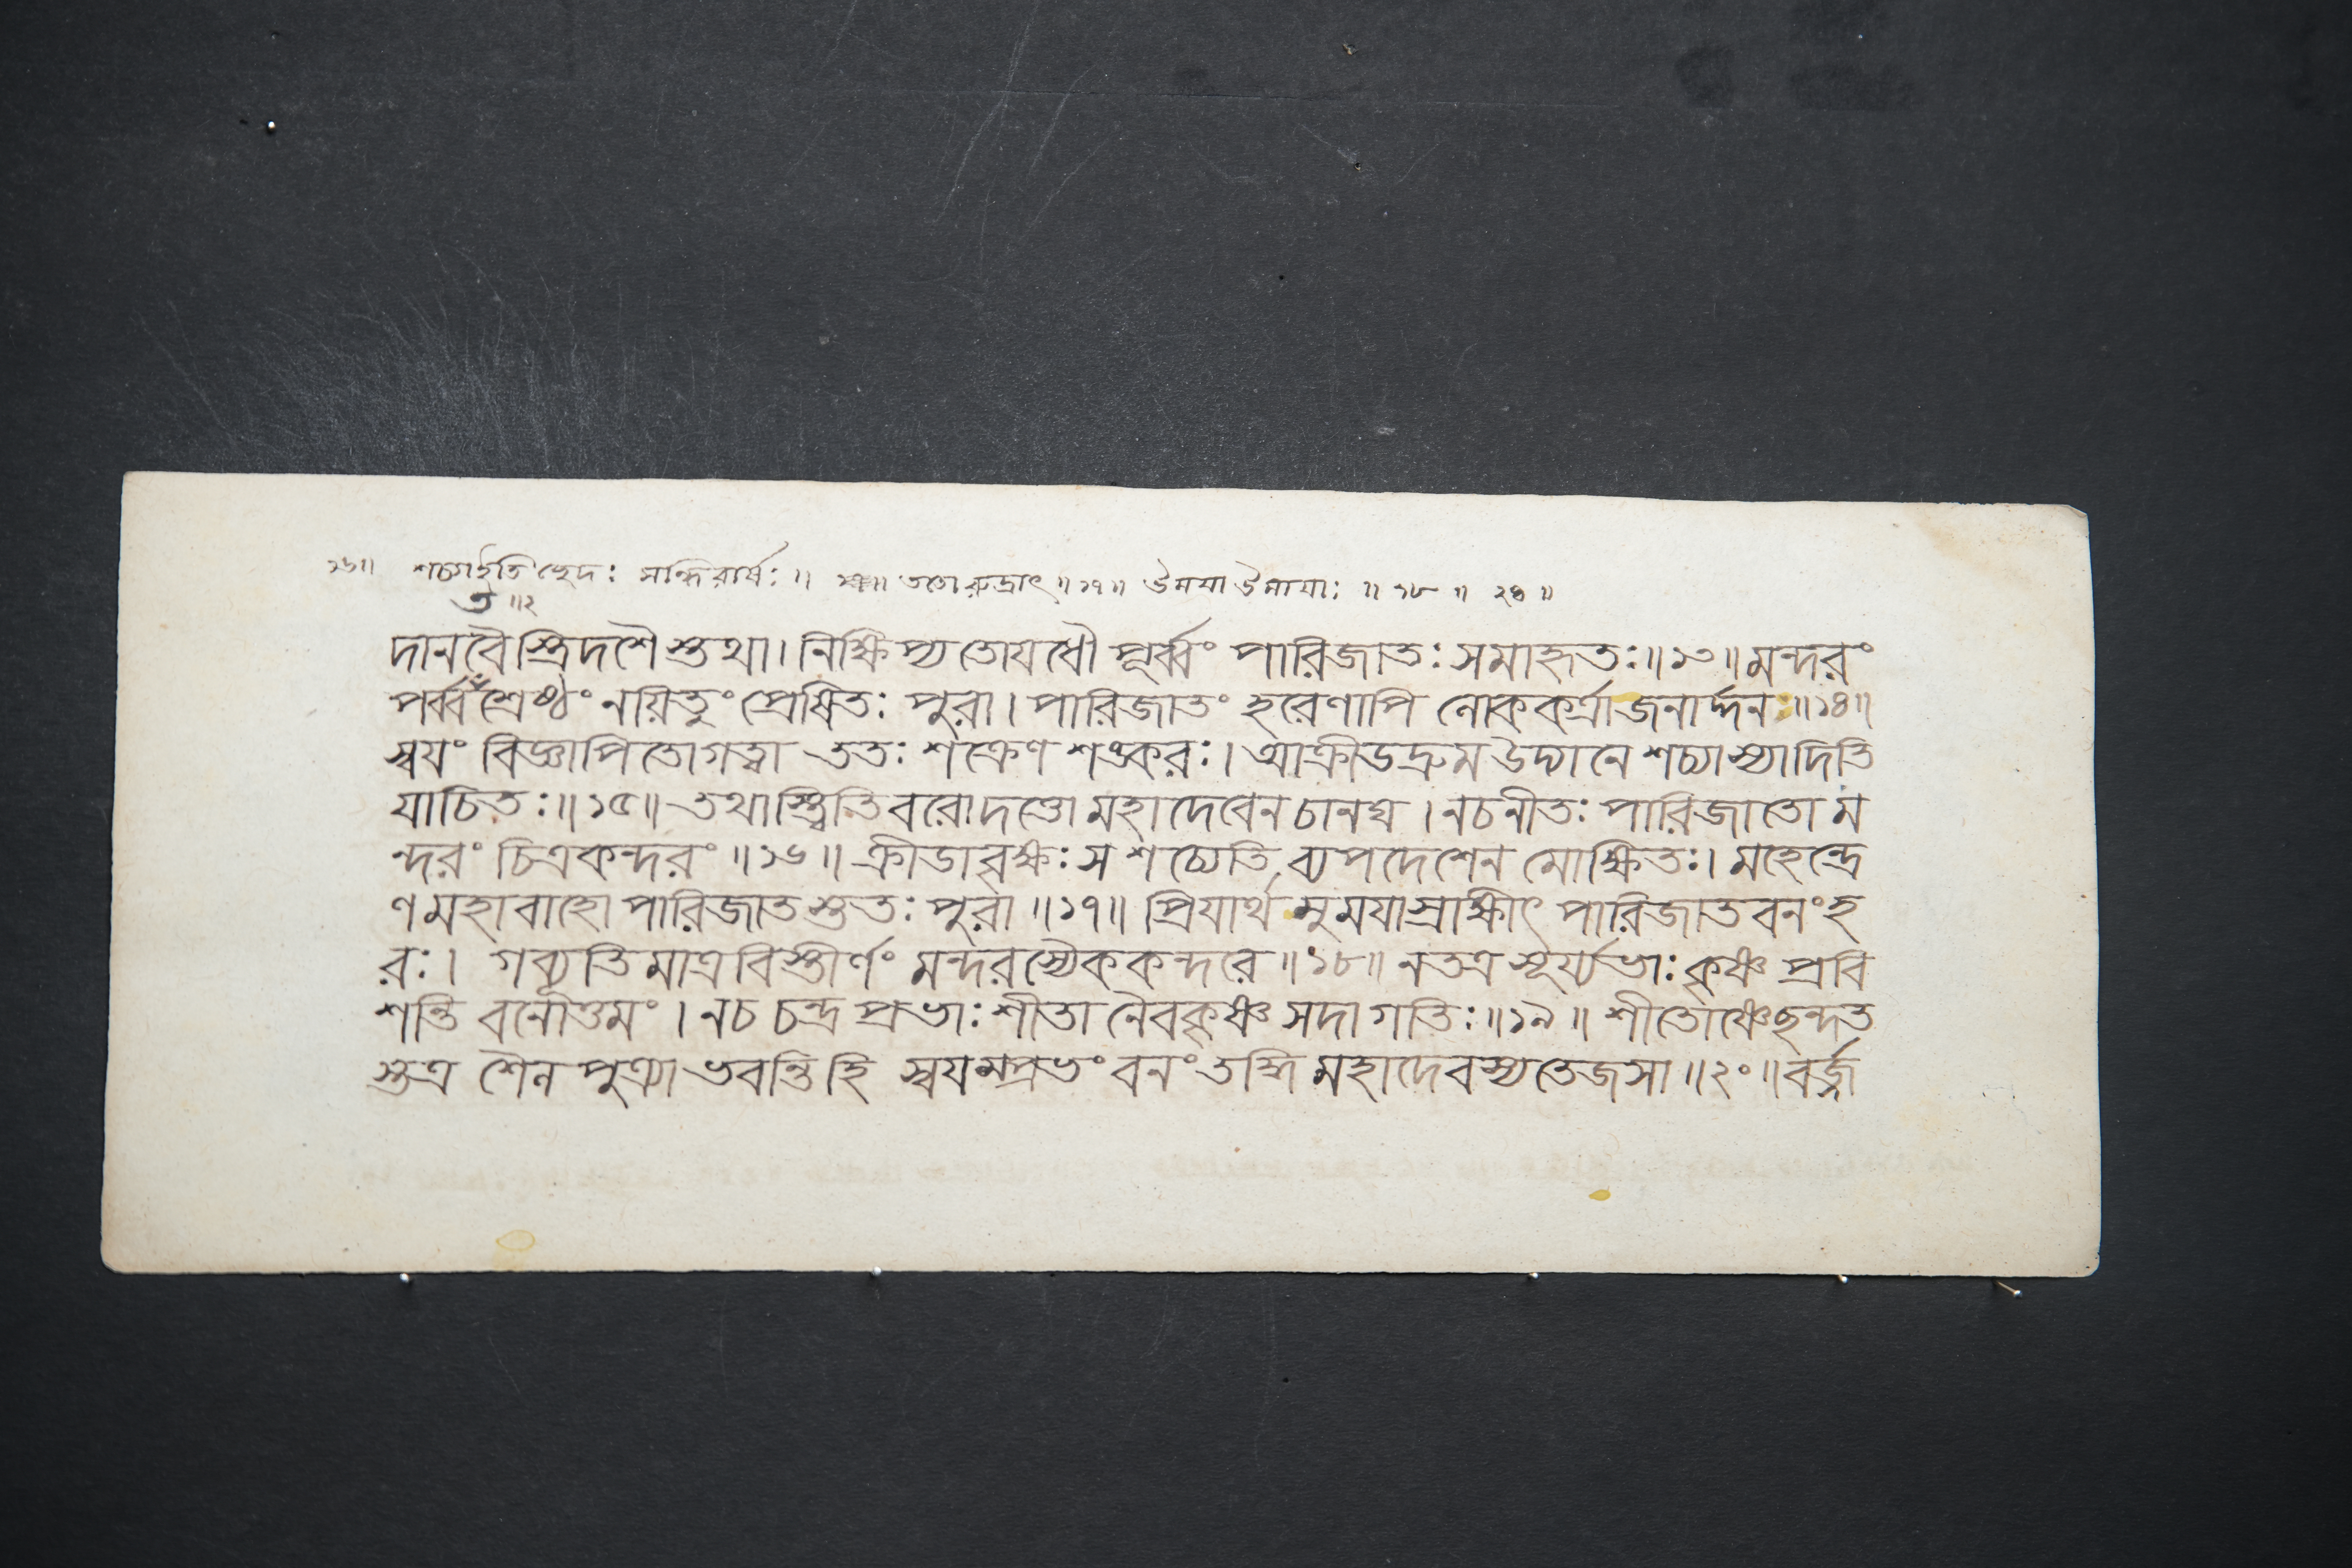 ১৬॥ শচ্যা ইতি ছেদঃ সন্ধিরার্ষঃ ॥ ততো রুদ্রাৎ ॥১৭॥ উময়া উমায়াঃ ॥ ১৮ ॥ ২০ ॥
ত ॥২
দানবৈস্ত্রিদশৈস্তথা। নিক্ষিপ্য তোযধৌ পূর্ব্বং পারিজাতঃ সমাহৃতঃ॥১৩॥ মন্দরং
পর্ব্বশ্রেষ্ঠং নয়িতুং প্রেষিতঃ পুরা। পারিজাতং হরেণাপি লোককর্ত্রা জনার্দ্দনঃ॥১৪॥
স্বযং বিজ্ঞাপিতো গত্বা ততঃ শক্রেণ শঙ্করঃ। আক্রীডদ্রুম উদ্যানে শচ্যাস্যাদিতি
যাচিতঃ॥১৫॥ তথাস্ত্বিতি বরোদত্তো মহাদেবেন চানঘ । নচনীতঃ পারিজাতো ম
ন্দরং চিত্রকন্দরং ॥১৬॥ ক্রীডাবৃক্ষঃ স শচ্যেতি ব্যপদেশেন মোক্ষিতঃ। মহেন্দ্রে
ণ মহাবাহো পারিজাতস্ততঃ পুরা ॥১৭॥ প্রিযার্থমুমযাস্রাক্ষীৎ পারিজাতবনং হ
রঃ। গব্যূতিমাত্রবিস্তীর্ণং মন্দরস্যৈককন্দরে ॥১৮॥ নতত্র সূর্য্যভাঃ কৃষ্ণ প্রবি
শন্তি বনোত্তমং । নচ চন্দ্রপ্রভাঃ শীতা নৈবকৃষ্ণ সদাগতিঃ॥১৯॥ শীতোষ্ণেছন্দত
স্তত্র শৈলপুত্র্যা ভবন্তি হি স্বযম্প্রভং বনং তদ্ধি মহাদেবস্য তেজসা ॥২০॥ বর্জ্জ